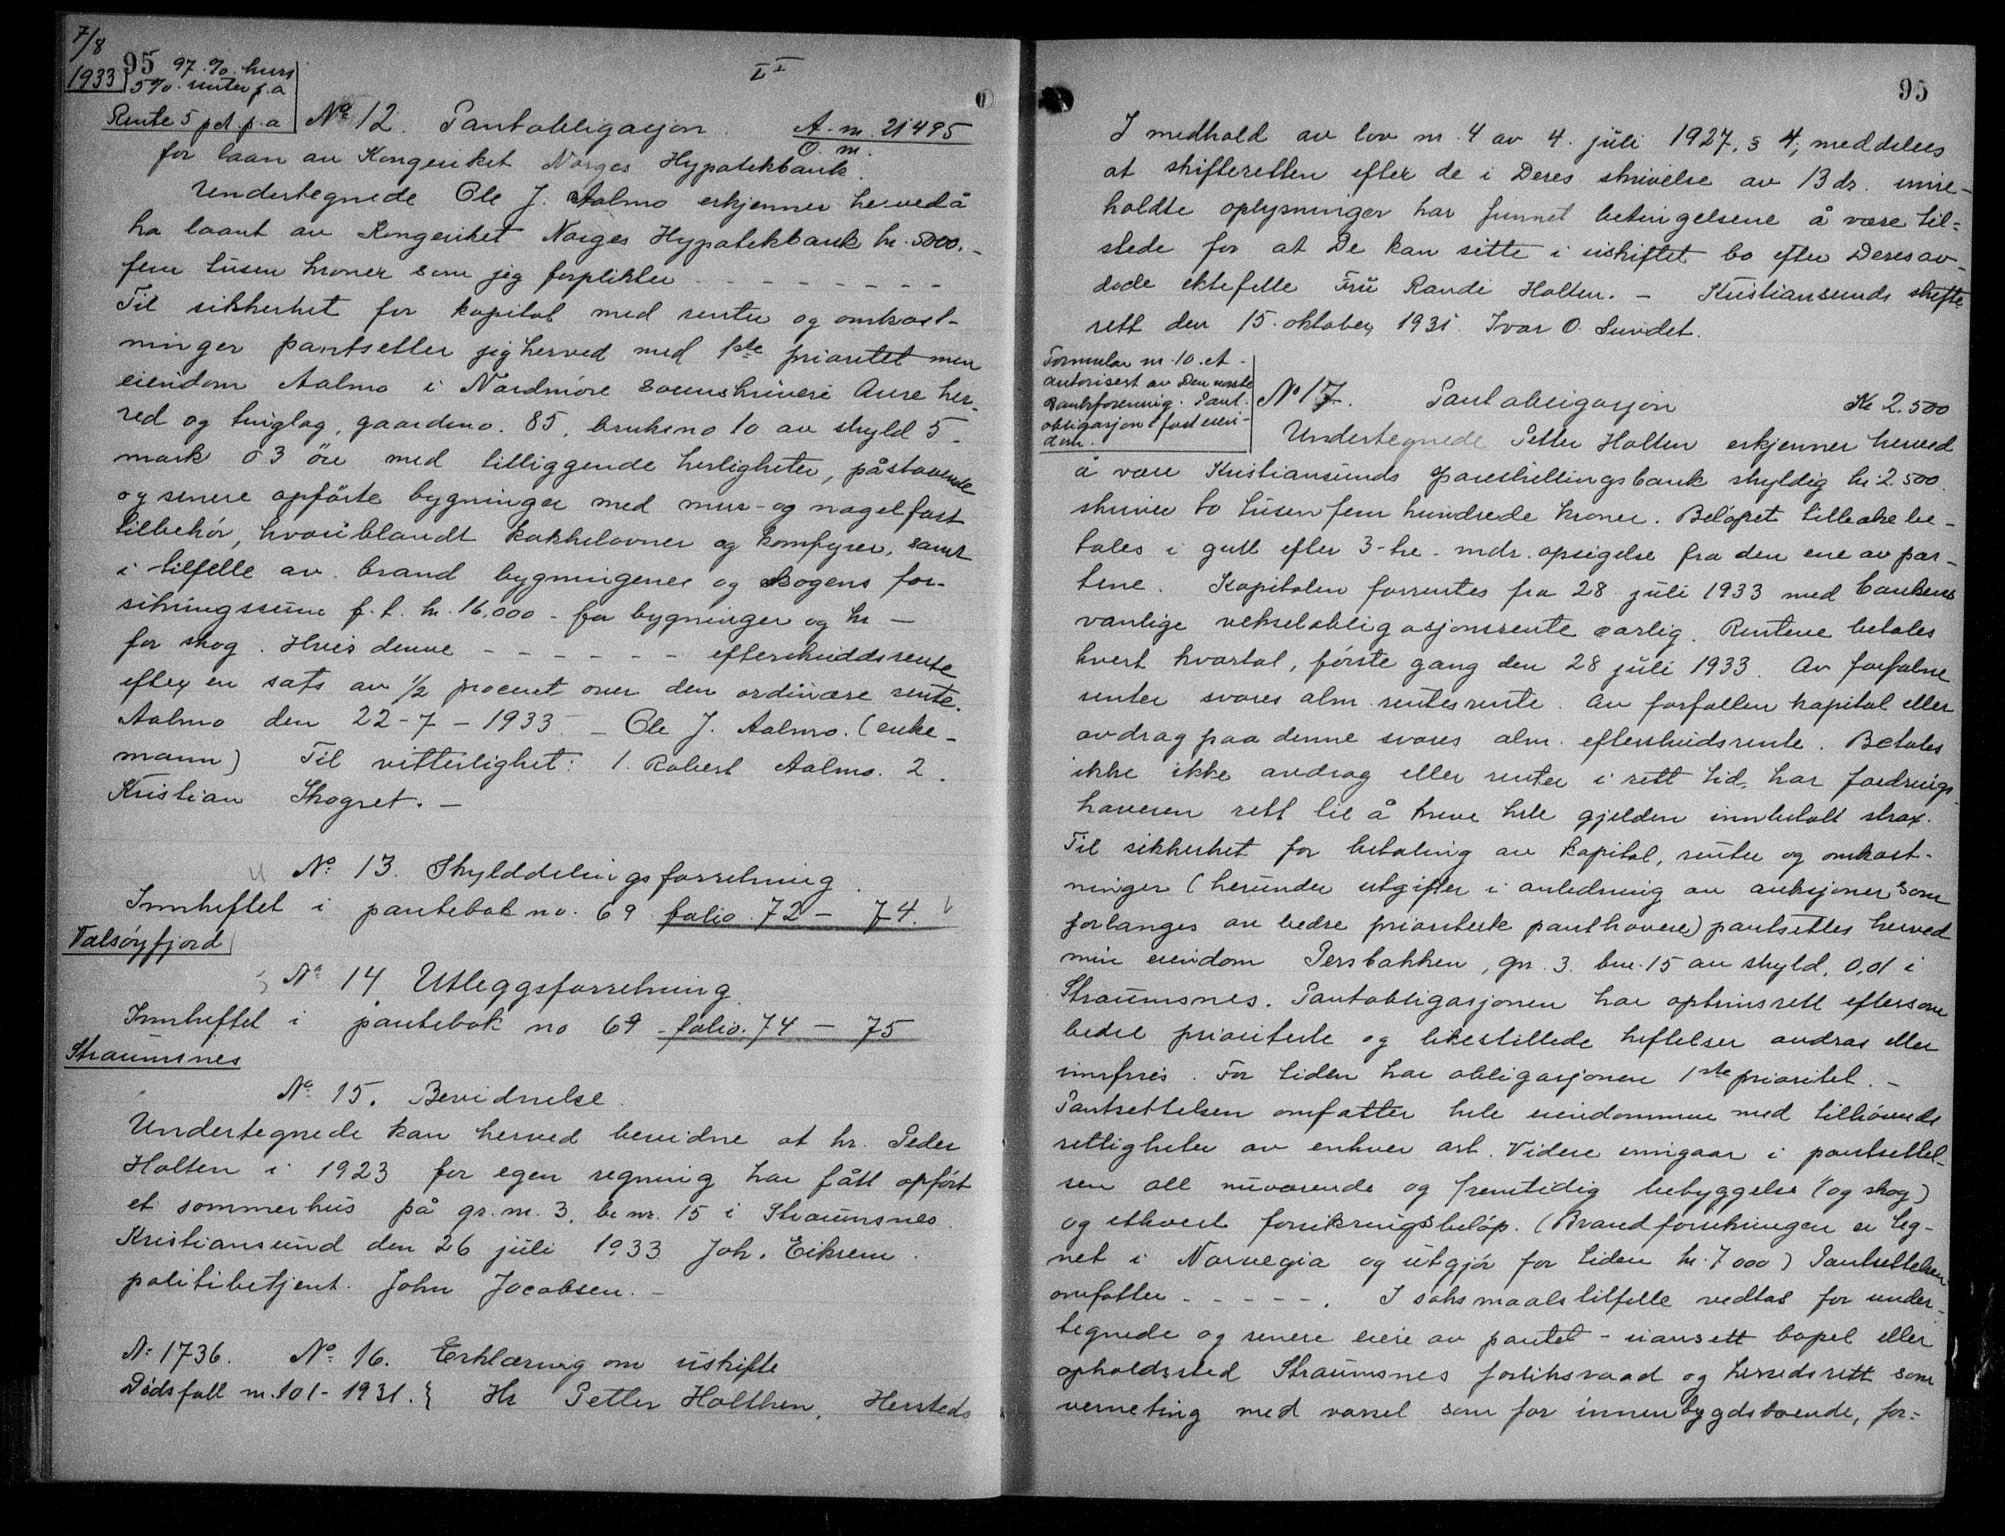 7/8
1933
95 97 % kurs
5% renter p.a
Rente 5 pct. p.a
II
No 12. Pantobligasjon. A. nr. 21495
O. nr.
for laan av Kongeriket Norges Hypotekbank.
Undertegnede Ole J. Aalmo erkjenner herved å
ha laant av Kongeriket Norges Hypotekbank kr. 5000,-
fem tusen kroner som jeg forplikter - - - - - - - -
Til sikkerhet for kapital med renter og omkost-
ninger pantsetter jeg herved med 1ste prioritet min
eiendom Aalmo i Nordmöre sorenskriveri Aure her-
red og tinglag, gaardsno. 85, bruksno 10 av skyld 5-
mark 03 öre med tilliggende herligheter, påstaaende
og senere opförte bygninger med mur- og nagelfast
tilbehör, hvoriblandt kakkelovner og komfyrer, samt
i tilfelle av brand bygningenes og skogens for-
sikringssum p.t. kr. 16.000 - for bygninger og kr —
for skog. Hvis denne - - - - - - efterskuddsrente
efter en sats av 1/2 procent over den ordinære rente.
Aalmo den 22-7-1933 — Ole J. Aalmo. (enke-
mann) Til vitterlighet: 1. Robert Aalmo. 2.
Kristian Skogset. —
No 13. Skylddelingsforretning.
Innheftet i pantebok no. 69 folio. 72 - 74.
Valsøyfjord
No 14 Utleggsforretning.
Innheftet i pantebok no 69 - folio. 74 - 75
Straumsnes
No 15. Bevidnelse.
Undertegnede kan herved bevidne at hr. Peder
Holten i 1923 for egen regning har fått opført
et sommerhus på gr. nr. 3, br. nr. 15 i Straumsnes.
Kristiansund den 26 juli 1933 Joh. Eikrem
politibetjent. John Jacobsen. —
No 1736. No 16. Erklæring om uskifte
Dödsfall nr. 101-1931. } Hr Petter Holthen, Hersteds
95
I medhold av lov nr. 4 av 4. juli 1927, § 4, meddeles
at skifteretten efter de i Deres skrivelse av 13 ds. inne-
holdte oplysninger har funnet betingelsene å være til-
stede for at De kan sitte i uskiftet bo efter Deres av-
døde ektefelle Fru Randi Holten. — Kristiansunds skifte-
rett den 15. oktober 1931. Ivar O. Sundet.
Formular nr. 10. et -
autorisert av Den norske
Bankforening. Pant-
obligasjon i fast eien-
dom.
No 17. Pantobligasjon Kr 2.500
Undertegnede Petter Holten erkjenner herved
å være Kristiansunds Spareskillingsbank skyldig kr. 2.500.
skriver to tusen fem hundrede kroner. Beløpet tilbakebe-
tales i gull efter 3-tre. mdr. opsigelse fra den ene av par-
tene. Kapitalen forrentes fra 28 juli 1933 med bankens
vanlige vekselobligasjonsrente aarlig. Rentene betales
hvert kvartal, første gang den 28 juli 1933. Av forfalne
renter svares alm. rentesrente. Av forfallen kapital eller
avdrag paa denne svares alm. efterskudsrente. Betales
ikke ikke avdrag eller renter i rett tid, har fordrings-
haveren rett til å kreve hele gjelden innbetalt strax.
Til sikkerhet for betaling av kapital, renter og omkost-
ninger (herunder utgifter i anledning av auksjoner som
forlanges av bedre prioriterte panthavere) pantsettes herved
min eiendom Persbakken, gr. 3. bnr. 15 av skyld. 0,01 i
Straumsnes. Pantobligasjonen har optrinsrett eftersom
bedre prioriterte og likestillede heftelser avdras eller
innfries. For tiden har obligasjonen 1ste prioritet. —
Pantsettelsen omfatter hele eiendommen med tilhørende
rettigheter av enhver art. Videre inngaar i pantsettel-
sen all nuværende og fremtidig bebyggelse (og skog)
og ethvert forsikringsbeløp. (Brandforsikringen er teg-
net i Norvegia og utgjör for tiden kr. 7000) Pantsettelsen
omfatter - - - - -. I søksmaalstilfelle vedtas for under-
tegnede og senere eiere av pantet - uansett bopel eller
opholdssted Straumsnes forliksraad og herredsrett som
verneting med varsel som for innenbygdsboende, for-